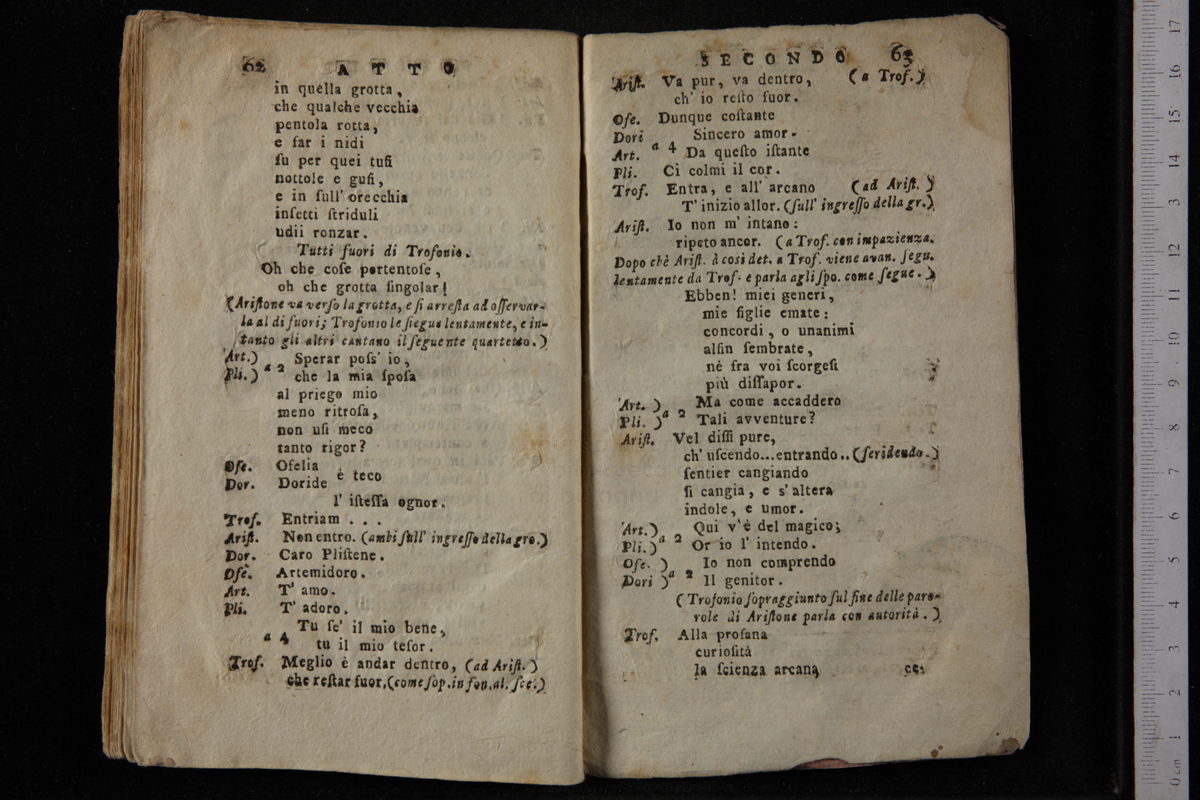 62 ATTO
in quella grotta,
che qualche vecchia
pentola rotta,
e far i nidi
ſu per quei tufi
nottole e gufi,
e in ſull' orecchia
inſetti ſtriduli
udii ronzar.
Tutti fuori di Trofonio.
Oh che coſe portentoſe,
oh che grotta ſingolar!
(Ariſtone va verſo la grotta, e ſi arreſta ad oſſervar-
la al di fuori; Trofonio le ſiegue lentamente, e in-
tanto gli altri cantano il ſeguente quartetto.)
Art.) a 2 Sperar poſs' io,
Pli.) che la mia ſpoſa
al priego mio
meno ritroſa,
non uſi meco
tanto rigor?
Ofe. Ofelia
è teco
Dor. Doride
l' iſteſſa ognor.
Trof. Entriam . . .
Ariſt. Non entro. (ambi ſull' ingreſſo della gro.)
Dor. Caro Pliſtene.
Ofe. Artemidoro.
Art. T' amo.
Pli. T' adoro.
Tu ſe' il mio bene,
a 4 tu il mio teſor.
Trof. Meglio è andar dentro, (ad Ariſt.)
che reſtar fuor. (come ſop. in fon. al. ſce.)
SECONDO 63
Ariſt. Va pur, va dentro, (a Trof.)
ch' io reſto fuor.
Ofe. Dunque coſtante
Dori Sincero amor.
Art. a 4 Da queſto iſtante
Pli. Ci colmi il cor.
Trof. Entra, e all' arcano (ad Ariſt.)
T' inizio allor. (ſull' ingreſſo della gr.)
Ariſt. Io non m' intano:
ripeto ancor. (a Trof. con impazienza.
Dopo chè Ariſt. à così det. a Trof. viene avan. ſegu.
lentamente da Trof. e parla agli ſpo. come ſegue.)
Ebben! miei generi,
mie figlie emate:
concordi, o unanimi
alfin ſembrate,
nè fra voi ſcorgeſi
più diſſapor.
Art. ) Ma come accaddero
Pli. ) a 2 Tali avventure?
Ariſt. Vel diſſi pure,
ch' uſcendo...entrando.. (ſoridendo.)
ſentier cangiando
ſi cangia, e s' altera
indole, e umor.
Art.) Qui v'è del magico;
Pli.) a 2 Or io l' intendo.
Ofe. ) Io non comprendo
Dori ) a 2 Il genitor.
(Trofonio ſopraggiunto ſul fine delle paro-
role di Ariſtone parla con autorità.)
Trof. Alla profana
curioſità
la ſcienza arcana
ce-